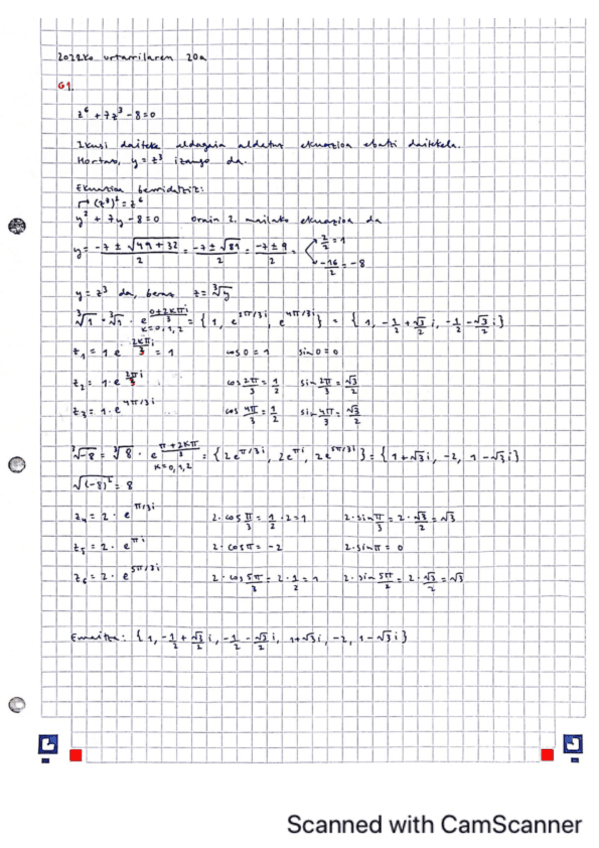 2022ko urtarrilaren 20a
G1.
z⁶ + 7z³ - 8 = 0
Ikusi daiteke aldagaia aldatuz ekuazioa ebatzi daitekela.
Hortaz, y = z³ izango da.
Ekuazioa berridatziz:
(z³)² = z⁶
y² + 7y - 8 = 0 Orain 2. mailako ekuazioa da
y = (-7 ± √(49 + 32))/2 = (-7 ± √81)/2 = (-7 ± 9)/2 = 2/2 = 1
-16/2 = -8
y = z³ da, beraz z = ³√y
³√1 = ³√1 · e^((0+2kπ)/3 i) = {1, e^(2π/3i), e^(4π/3i)} = {1, -1/2 + √3/2 i, -1/2 - √3/2 i}
k=0,1,2
z₁ = 1·e^(2kπ/3 i) = 1 cos 0 = 1 sin 0 = 0
z₂ = 1·e^(2π/3 i) cos 2π/3 = 1/2 sin 2π/3 = √3/2
z₃ = 1·e^(4π/3i) cos 4π/3 = 1/2 sin 4π/3 = √3/2
³√-8 = ³√8 · e^((π+2kπ)/3) = {2e^(π/3i), 2e^(πi), 2e^(5π/3i)} = {1+√3i, -2, 1-√3i}
k=0,1,2
√(-8)² = 8
z₄ = 2· e^(π/3i) 2·cos π/3 = 1/2 ·2 = 1 2·sin π/3 = 2·√3/2 = √3
z₅ = 2· e^(πi) 2·cos π = -2 2·sin π = 0
z₆ = 2· e^(5π/3i) 2·cos 5π/3 = 2·1/2 = 1 2·sin 5π/2 = 2·√3/2 = √3
Emaitza: {1, -1/2 + √3/2 i, -1/2 - √3/2 i, 1+√3i, -2, 1-√3i}
Scanned with CamScanner